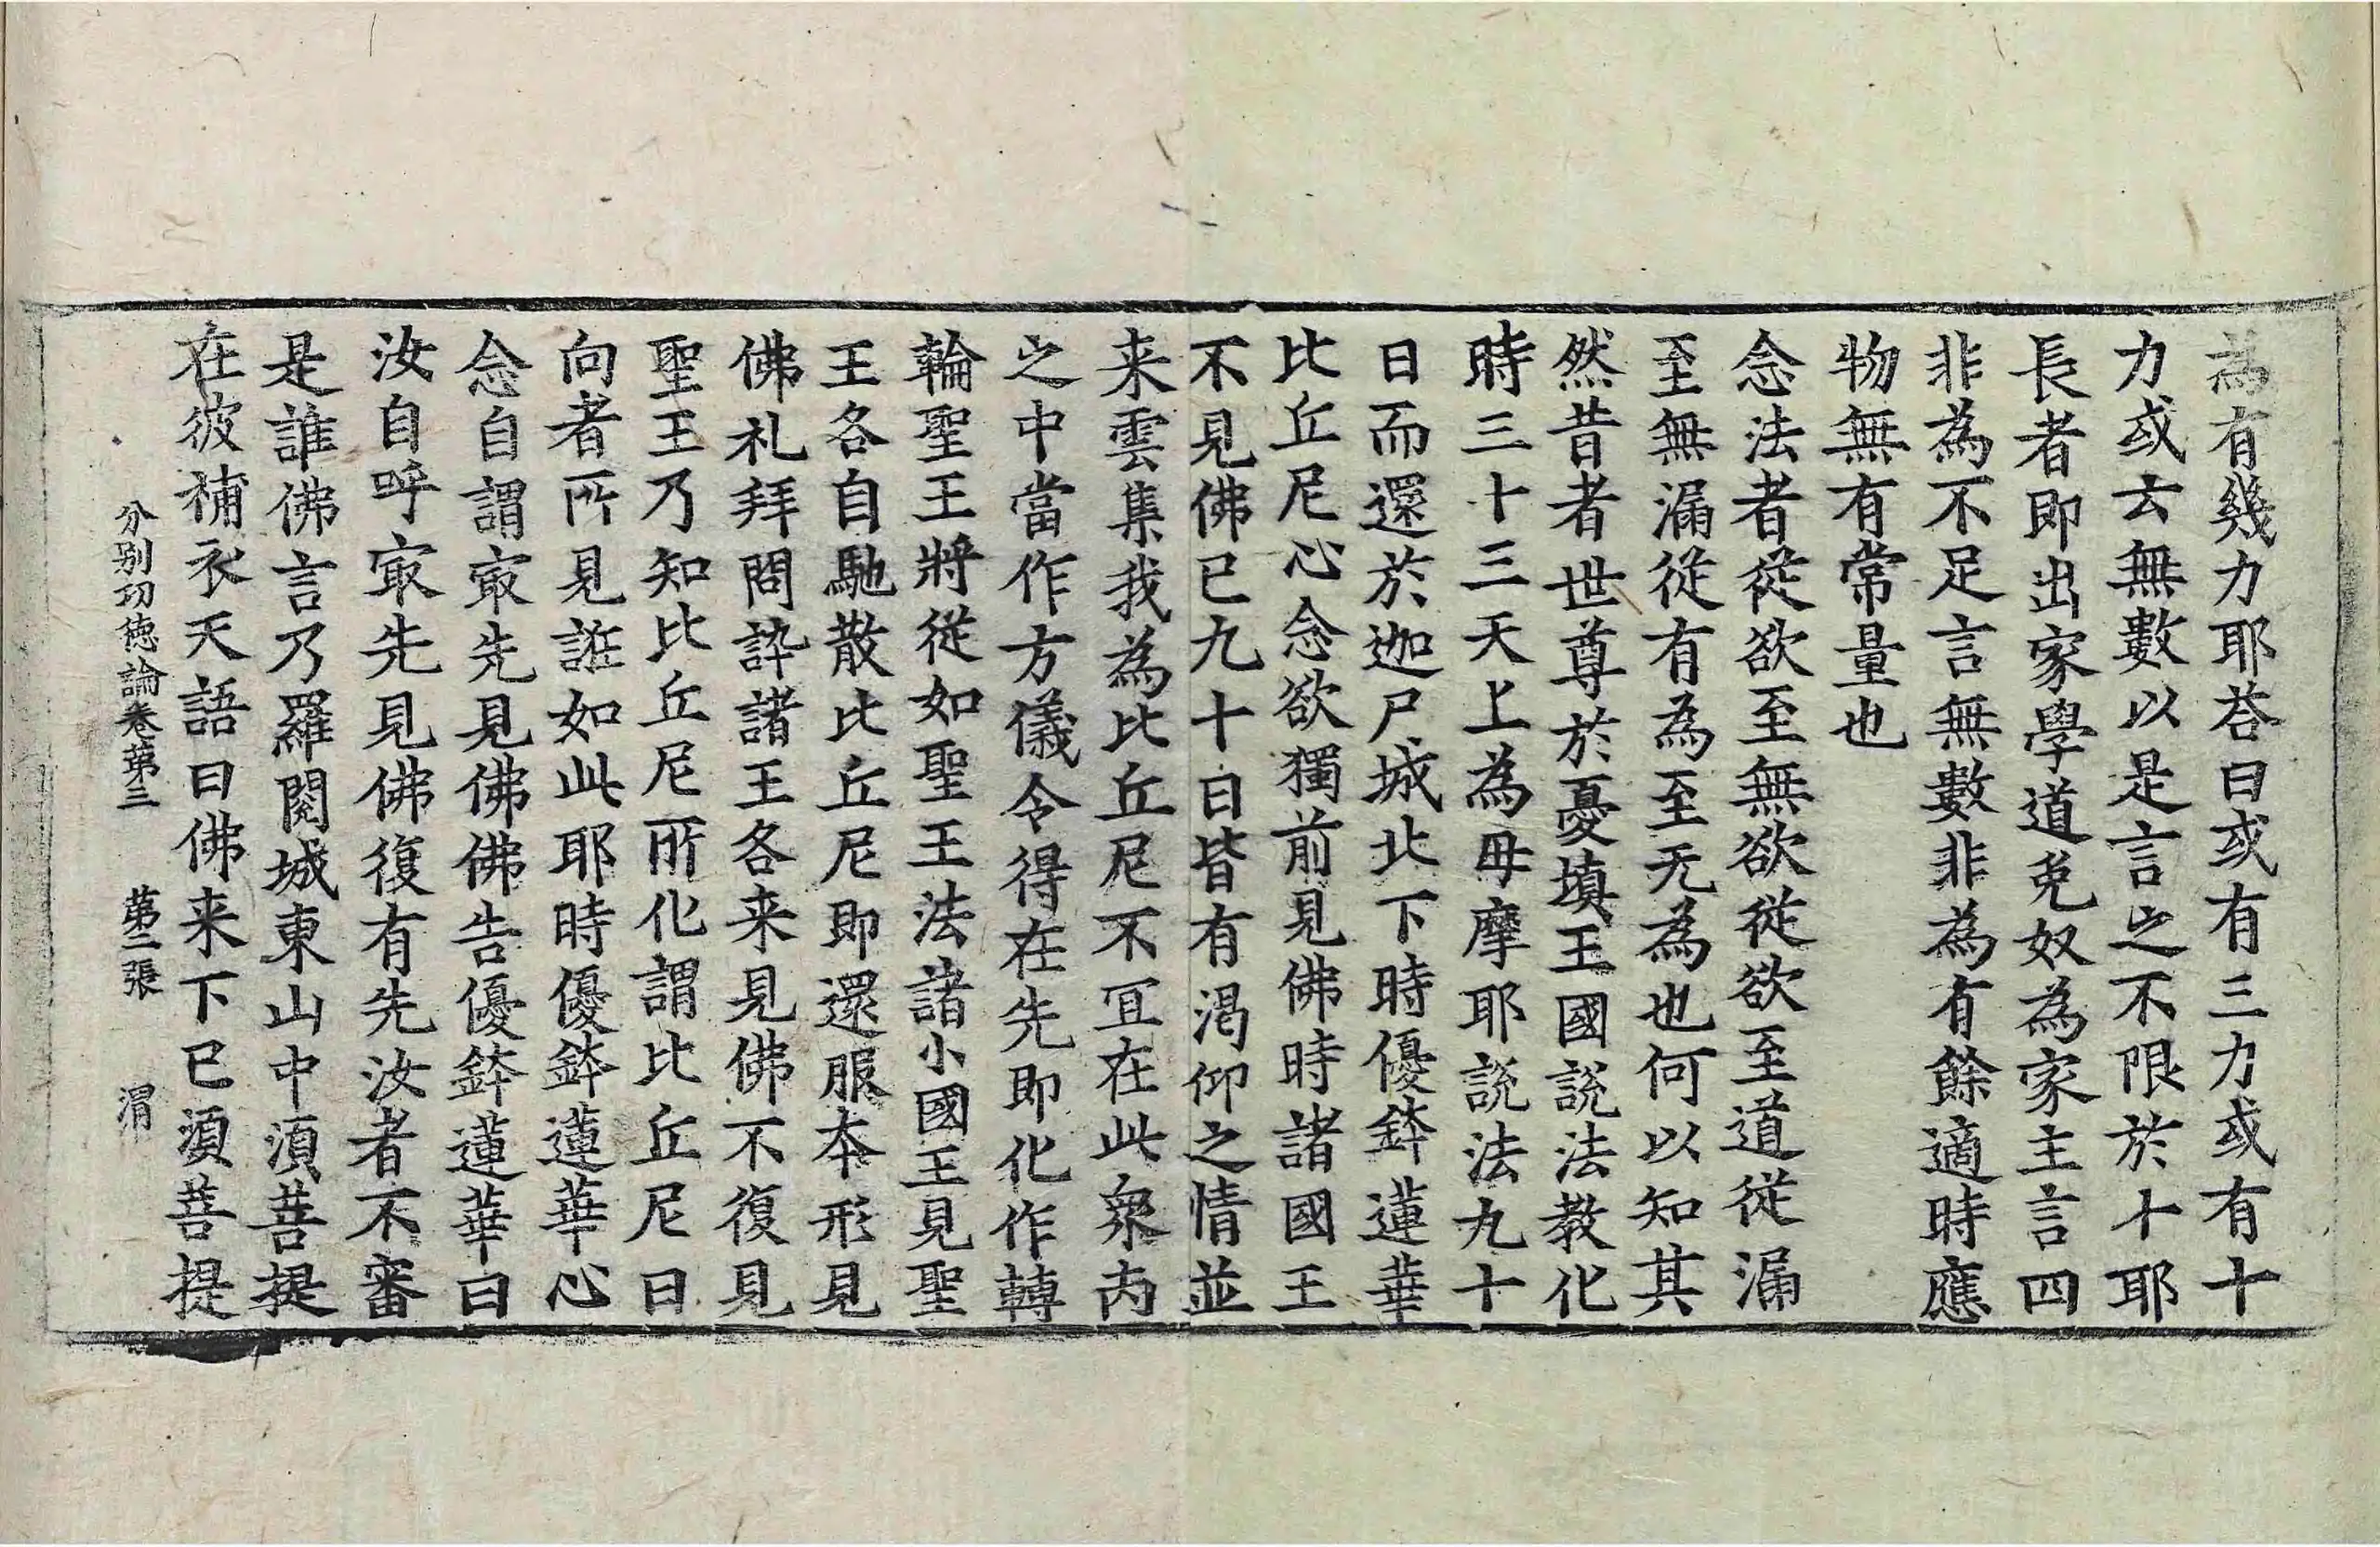 為有幾力耶荅曰或有三力或有十
力或云無數以是言之不限於十耶
長者即出家學道免奴為家主言四
非為不足言無數非為有餘適時應
物無有常量也
念法者從欲至無欲從欲至道從漏
至無漏從有為至无為也何以知其
然昔者世尊於憂填王國說法教化
時三十三天上為母摩耶說法九十
日而還於迦尸城北下時優鉢蓮華
比丘尼心念欲獨前見佛時諸國王
不見佛已九十日皆有渴仰之情並
来雲集我為比丘尼不冝在此衆内
之中當作方儀令得在先即化作轉
輪聖王將從如聖王法諸小國王見聖
王各自馳散比丘尼即還服夲形見
佛礼拜問訊諸王各来見佛不復見
聖王乃知比丘尼所化謂比丘尼曰
向者所見誑如此耶時優鉢蓮華心
念自謂㝡先見佛佛告優鉢蓮華曰
汝自呼㝡先見佛復有先汝者不審
是誰佛言乃羅閱城東山中湏菩提
在彼補衣天語曰佛来下已湏菩提
分别功德論卷第三　第二張　渭